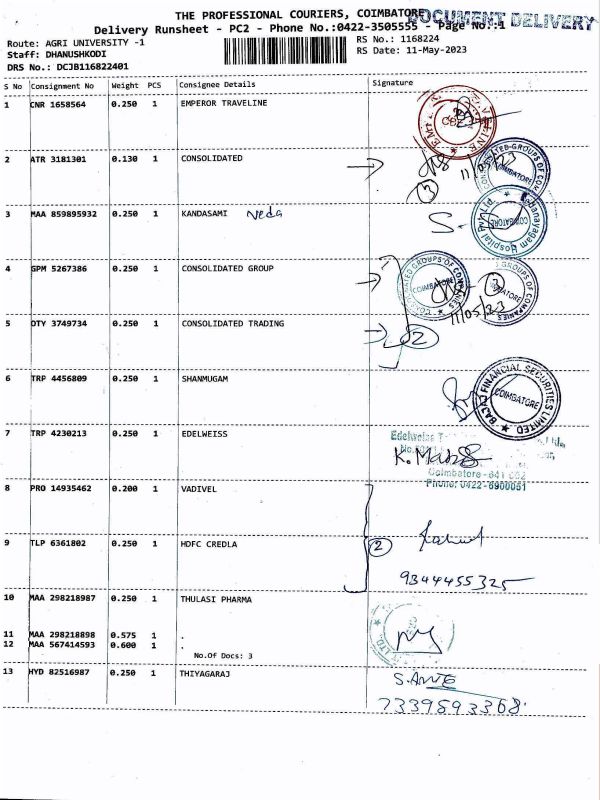 THE PROFESSIONAL COURIERS, COIMBATORE
DOCUMENT DELIVERY
Delivery Runsheet - PC2 - Phone No.:0422-3505555 - Page No.:1
Route: AGRI UNIVERSITY -1
RS No.: 1168224
Staff: DHANUSHKODI
RS Date: 11-May-2023
DRS No.: DCJB116822401
S No Consignment No Weight PCS Consignee Details Signature
1 CNR 1658564 0.250 1 EMPEROR TRAVELINE
2 ATR 3181301 0.130 1 CONSOLIDATED
11/05/23
3
3 MAA 859895932 0.250 1 KANDASAMI Veda
Hospital Pvt Ltd.
COIMBATORE
4 GPM 5267386 0.250 1 CONSOLIDATED GROUP
CONSOLIDATED GROUPS OF COMPANIES
COIMBATORE
GROUPS OF COMPANIES
COIMBATORE
11/05/23
5 OTY 3749734 0.250 1 CONSOLIDATED TRADING
2
6 TRP 4456809 0.250 1 SHANMUGAM
BAJAJ FINANCIAL SECURITIES LIMITED
COIMBATORE
7 TRP 4230213 0.250 1 EDELWEISS
Edelweiss
Coimbatore - 641 002
Phone: 0422-6900051
8 PRO 14935462 0.200 1 VADIVEL
9 TLP 6361802 0.250 1 HDFC CREDLA
2
9344455325
10 MAA 298218987 0.250 1 THULASI PHARMA
11 MAA 298218898 0.575 1 .
12 MAA 567414593 0.600 1 .
No.Of Docs: 3
13 HYD 82516987 0.250 1 THIYAGARAJ
7339593368